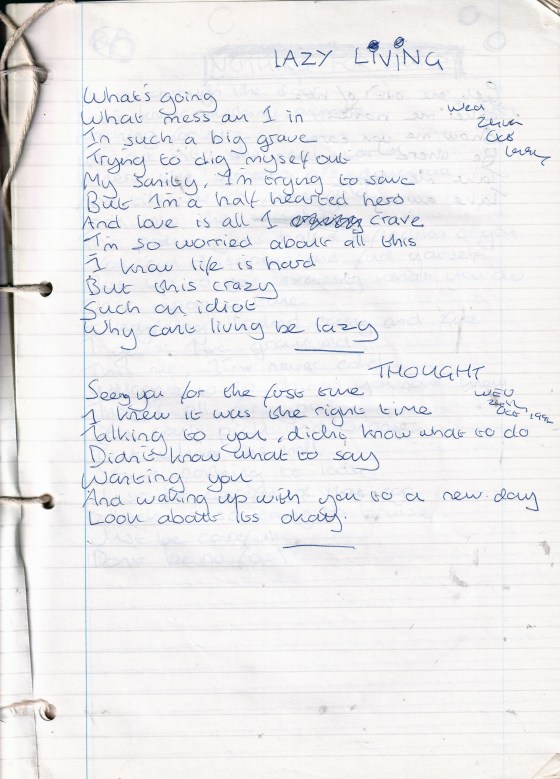 LAZY LIVING
What's going
What mess am I in
In such a big grave
Trying to dig myself out
My Sanity, I'm trying to save
But I'm a half hearted hero
And love is all I crave
I'm so worried about all this
I know life is hard
But this crazy
Such an idiot
Why cant living be lazy
Wed
Oct
THOUGHT
WED
Oct 1992
Seeing you for the first time
I knew it was the right time
Talking to you, didn't know what to do
Didn't know what to say
Wanting you
And waking up with you to a new day
Look about its okay.